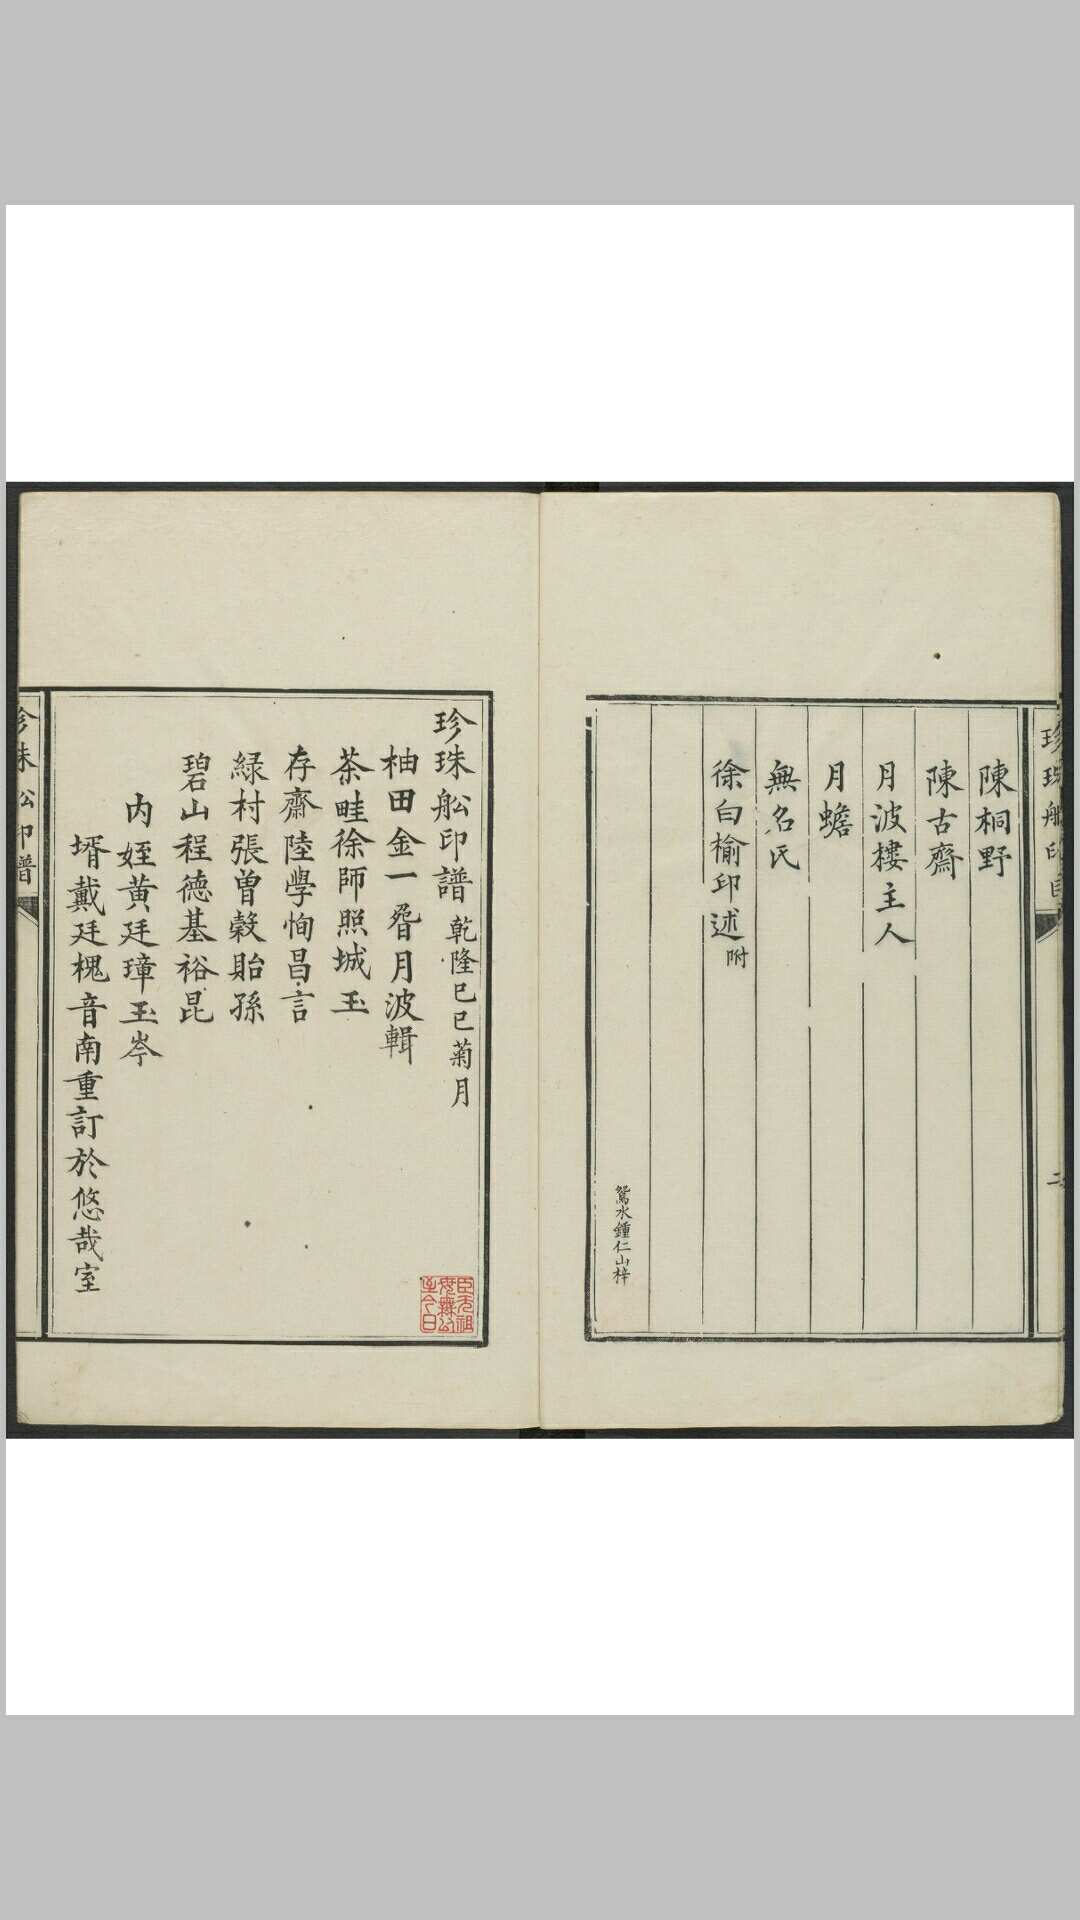 陳桐野
陳古齋
月波樓主人
月蟾
無名氏
徐白榆印述附
鴛水鍾仁山梓
二
珍珠舩印譜 乾隆己巳菊月
柚田金一㽞月波輯
茶畦徐師照城玉
存齋陸學恂昌言
緑村張曽榖貽孫
碧山程德基裕昆
内姪黄廷璋玉岑
壻戴廷槐音南重訂於悠哉室